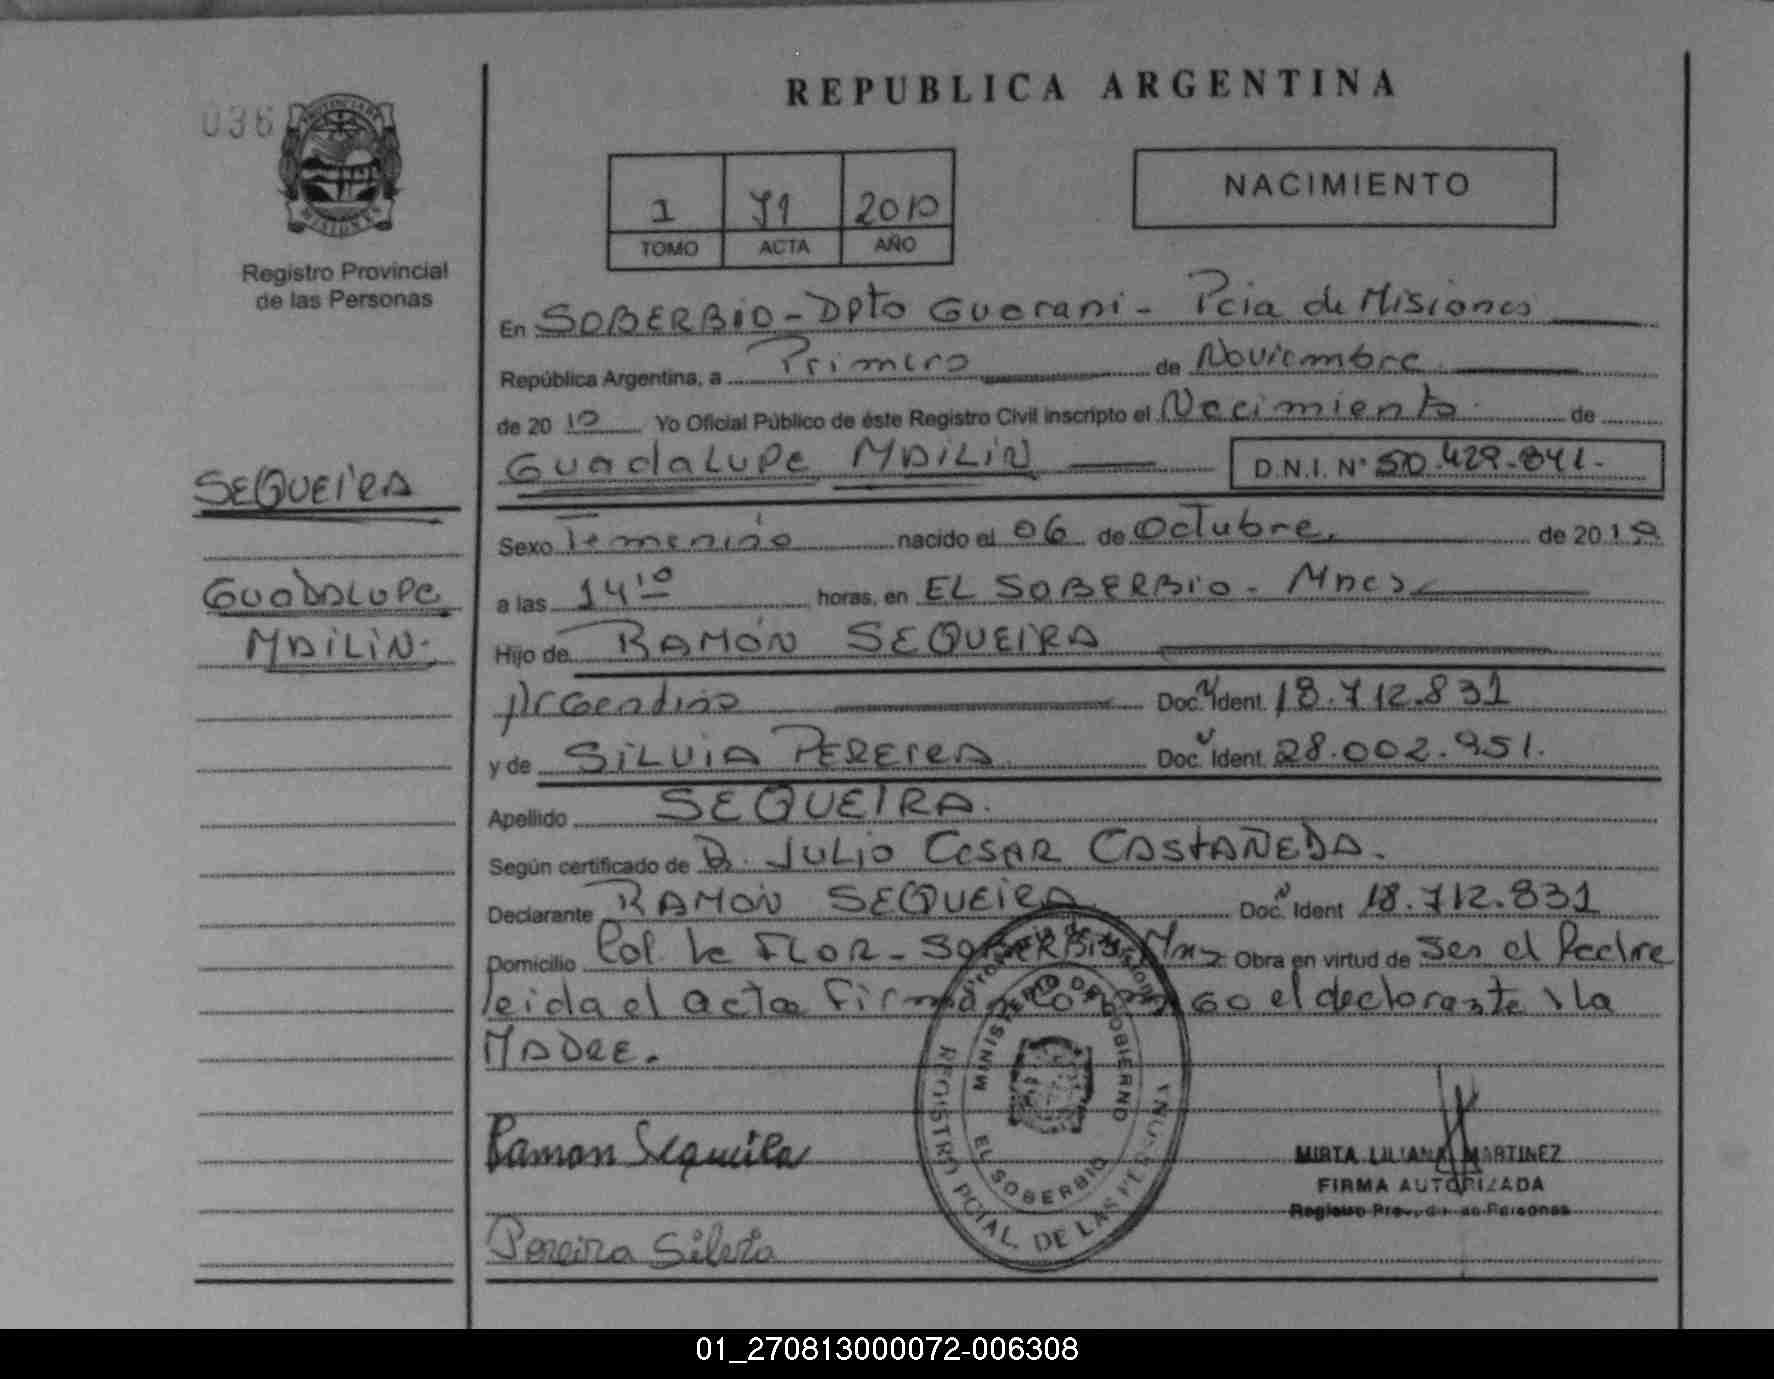 036
REPUBLICA ARGENTINA
NACIMIENTO
1 71 2010
TOMO ACTA AÑO
Registro Provincial
de las Personas
En SOBERBIO - Dpto Guarani - Pcia de Misiones
República Argentina, a Primero de Noviembre
de 2010 Yo Oficial Público de éste Registro Civil inscripto el Nacimiento de
GUADALUPE MAILIN D.N.I. N° 50.429.841.-
SEQUEIRA
GUADALUPE
MAILIN.-
Sexo Femenino nacido el 06 de Octubre de 2010
a las 14 10 horas, en EL SOBERBIO - Mnes
Hijo de RAMÓN SEQUEIRA
Argentino Doc. N Ident. 18.712.831
y de SILVIA PEREIRA Doc. N Ident. 28.002.951.
Apellido SEQUEIRA.
Según certificado de D. JULIO CESAR CASTAÑEDA.
Declarante RAMÓN SEQUEIRA Doc. N Ident 18.712.831
Domicilio Col. La FLOR - SOBERBIO Mnes Obra en virtud de ser el Padre
leida el acta Firman conmigo el declarante y la
MADRE.
Ramon Sequeira
Pereira Silvia
Provincia de Misiones
MINISTERIO DE GOBIERNO
EL SOBERBIO
REGISTRO PCIAL. DE LAS PERSONAS
MIRTA LILIANA MARTINEZ
FIRMA AUTORIZADA
Registro Prov. de las Personas
01_270813000072-006308